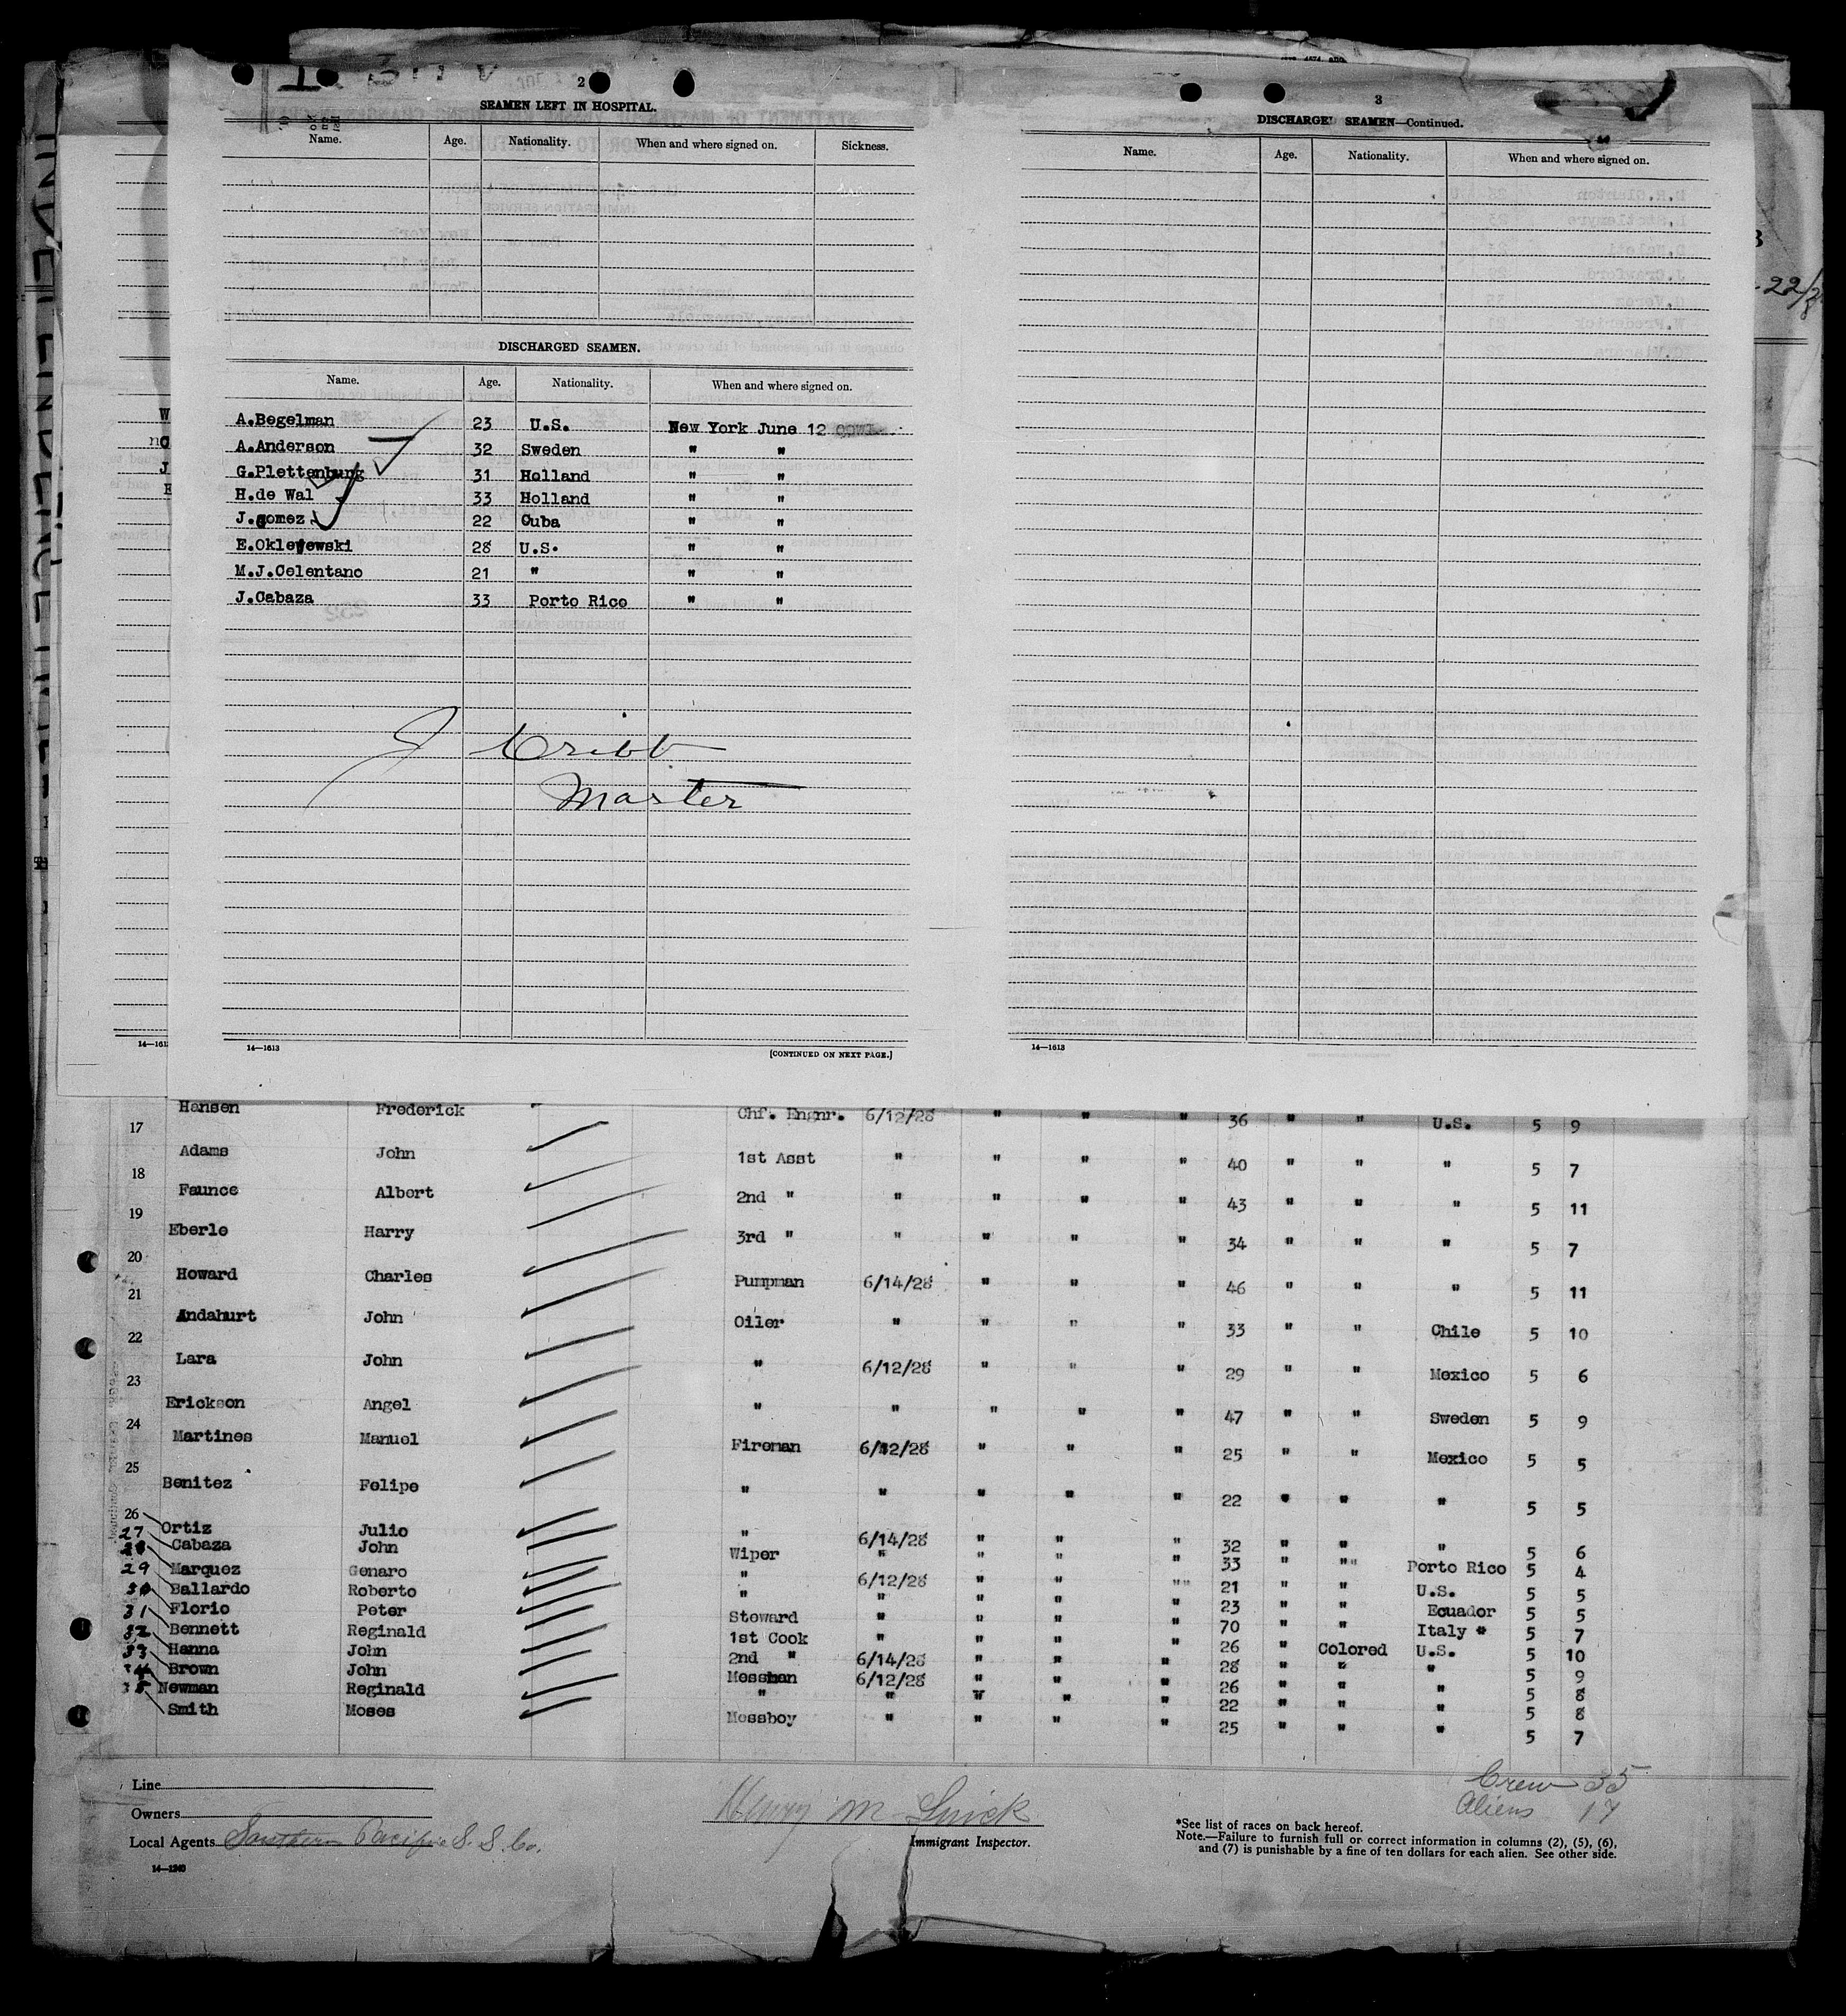 2
SEAMEN LEFT IN HOSPITAL.
Name. Age. Nationality. When and where signed on. Sickness.
DISCHARGED SEAMEN.
Name. Age. Nationality. When and where signed on.
A.Begelman 23 U.S. New York June 12
A.Anderson 32 Sweden " "
G.Plettenburg 31 Holland " "
H.de Wal 33 Holland " "
J.gomez 22 Cuba " "
E.Oklejewski 28 U.S. " "
M.J.Celentano 21 " " "
J.Cabaza 33 Porto Rico " "
J Cribb
Master
14—1613
[CONTINUED ON NEXT PAGE.]
3
DISCHARGE' SEAMEN—Continued.
Name. Age. Nationality. When and where signed on.
14—1613
22/28
14—161
Hansen Frederick Chf. Engnr. 6/12/28 " " " 36 " " U.S. 5 9
17 Adams John 1st Asst " " " " 40 " " " 5 7
18 Faunce Albert 2nd " " " " " 43 " " " 5 11
19 Eberle Harry 3rd " " " " " 34 " " " 5 7
20 Howard Charles Pumpman 6/14/28 " " " 46 " " " 5 11
21 Andahurt John Oiler " " " " 33 " " Chile 5 10
22 Lara John " 6/12/28 " " " 29 " " Mexico 5 6
23 Erickson Angel " " " " " 47 " " Sweden 5 9
24 Martines Manuel Fireman 6/12/28 " " " 25 " " Mexico 5 5
25 Benitez Felipe " " " " " 22 " " " 5 5
26 Ortiz Julio " 6/14/28 " " " 32 " " " 5 6
27 Cabaza John Wiper " " " " 33 " "" Porto Rico 5 4
28 Marquez Genaro " 6/12/28 " " "" 21 " " U.S. 5 5
29 Ballardo Roberto " " " " " 23 " " Ecuador 5 5
30 Florio Peter Steward " " " " 70 " " Italy * 5 7
31 Bennett Reginald 1st Cook " " " " 26 " Colored U.S. 5 10
32 Hanna John 2nd " 6/14/28 " " " 28 " " " 5 9
33 Brown John Messman 6/12/28 " " " 26 " " " 5 8
34 Newman Reginald " " " " " 22 " " " 5 8
35 Smith Moses Messboy " " " " 25 " " " 5 7
Line
Owners
Local Agents Southern Pacific S. S. Co.
14—1240
Henry M
Immigrant Inspector.
Crew 35
Aliens 17
*See list of races on back hereof.
Note.—Failure to furnish full or correct information in columns (2), (5), (6),
and (7) is punishable by a fine of ten dollars for each alien. See other side.